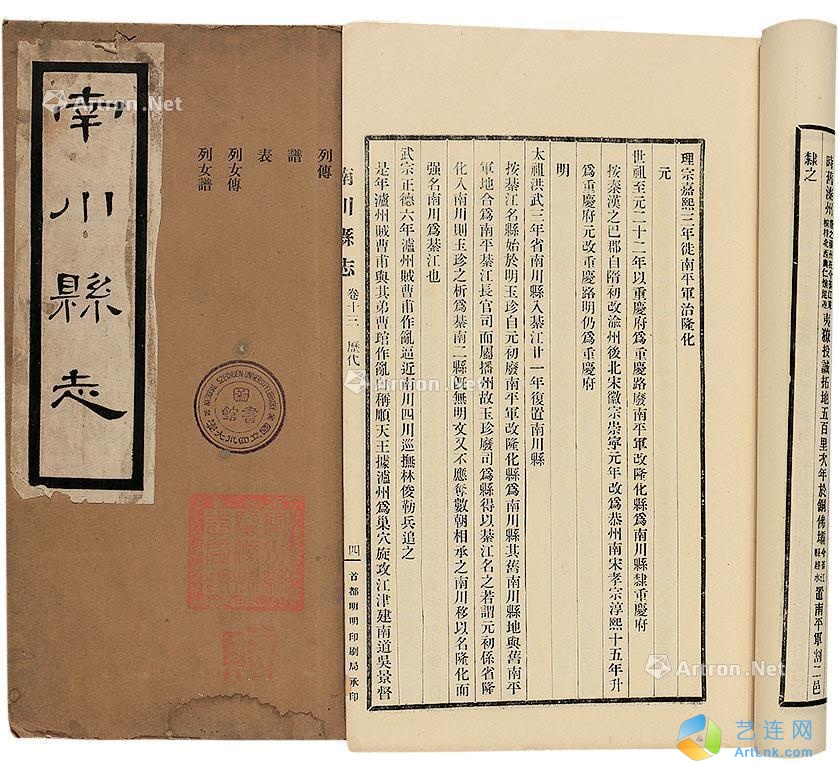 南川縣志
列傳
譜
表
列女傳
列女譜
國立四川大學
圖書館
NATIONAL SZECHUEN UNIVERSITY LIBRARY
時舊溱州
夷獠投誠拓地五百里次年於銅佛壩
置南平軍割二邑
隸之
理宗嘉熙三年徙南平軍治隆化
元
世祖至元二十二年以重慶府爲重慶路廢南平軍改隆化縣爲南川縣隸重慶府
按秦漢之巴郡自隋初改渝州後北宋徽宗崇寧元年改爲恭州南宋孝宗淳熙十五年升
爲重慶府元改重慶路明仍爲重慶府
明
太祖洪武三年省南川縣入綦江廿一年復置南川縣
按綦江名縣始於明玉珍自元初廢南平軍改隆化縣爲南川縣其舊南川縣地與舊南平
軍地合爲南平綦江長官司而屬播州故玉珍廢司爲縣得以綦江名之若謂元初係省隆
化入南川則玉珍之析爲綦南二縣旣無明文又不應奪數朝相承之南川移以名隆化而
强名南川爲綦江也
武宗正德六年瀘州賊曹甫作亂逼近南川四川巡撫林俊勒兵追之
是年瀘州賊曹甫與其弟曹琯作亂偽稱順天王據瀘州爲巢穴旋攻江津建南道吳景督
南川縣志 卷十三 歷代
四 首都明明印刷局承印
Artron.Net
Artron.Net
Artron.Net
Artron.Net
艺连网
ArtLnk.com